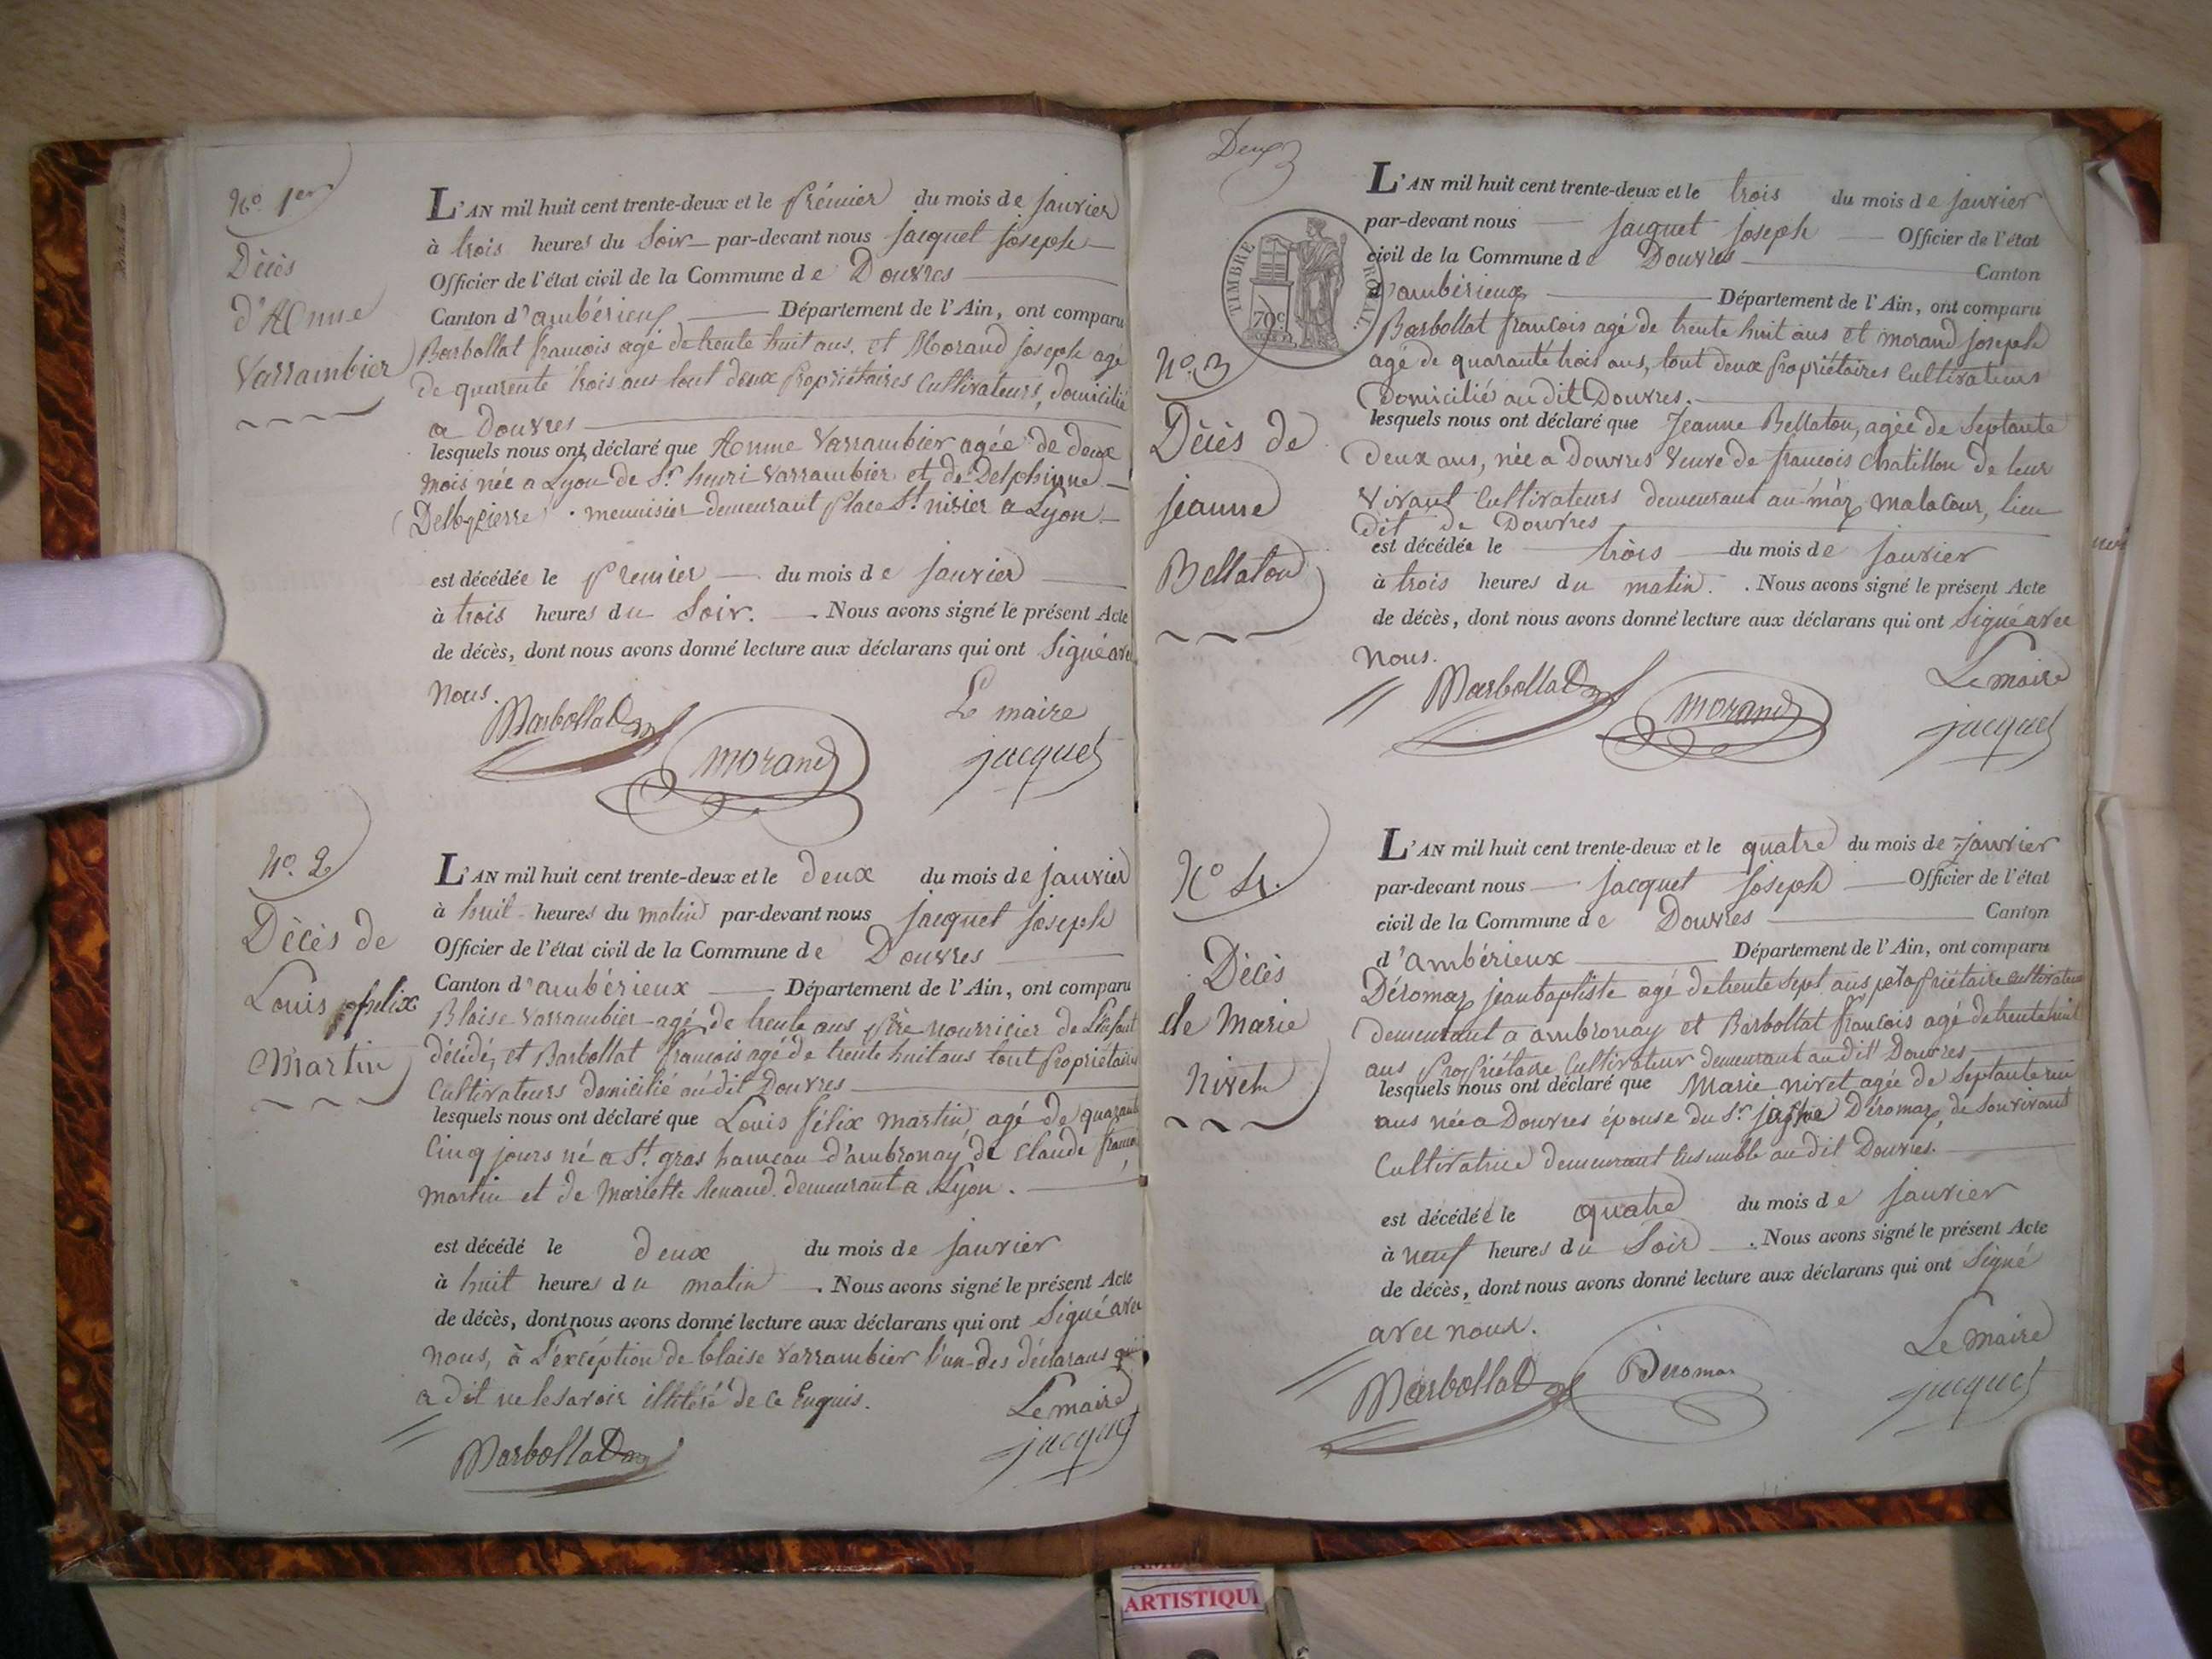 N.º 1er
Décès
d'Anne
Varrambier
L'AN mil huit cent trente-deux et le Prémier du mois de janvier
à trois heures du Soir par-devant nous jacquet joseph
Officier de l'état civil de la Commune de Douvres
Canton d'ambérieux Département de l'Ain, ont comparu
Barbollat francois agé de trente huit ans, et Morand joseph agé
de quarente trois ans tout deux Propriétaires Cultivateurs, domicilié
a Douvres
lesquels nous ont déclaré que Anne Varrambier agée de deux
mois née a Lyon de Sr. henri varrambier et de Delphinne
menuisier demeurant place St. nisier a Lyon
est décédée le Premier du mois de janvier
à trois heures du Soir. Nous avons signé le présent Acte
de décès, dont nous avons donné lecture aux déclarans qui ont Signé avec
nous.
Barbollat
morand
Le maire
jacquet
N.º 2
Décès de
Louis félix
Martin
L'AN mil huit cent trente-deux et le deux du mois de janvier
à huit heures du matin par-devant nous jacquet joseph
Officier de l'état civil de la Commune de Douvres
Canton d'ambérieux Département de l'Ain, ont comparu
Blaise Varrambier agé de trente ans père nourricier de L'enfant
décédé, et Barbollat francois agé de trente huit ans tout Propriétaires
Cultivateurs domicilié au dit Douvres
lesquels nous ont déclaré que Louis félix martin agé de quarante
Cinq jours né a St. gras hameau d'ambronay de Claude
martin et de Mariette Renaud demeurant a Lyon.
est décédé le deux du mois de janvier
à huit heures du matin. Nous avons signé le présent Acte
de décès, dont nous avons donné lecture aux déclarans qui ont Signé avec
nous, à L'exception de blaise varrambier l'un des déclarans qui
a dit ne le savoir illitéré de ce Enquis.
Barbollat
Le maire
jacquet
Deux
TIMBRE ROYAL
70c
N.º 3
Décès de
jeanne
Bellaton
L'AN mil huit cent trente-deux et le trois du mois de janvier
par-devant nous jacquet joseph Officier de l'état
civil de la Commune de Douvres Canton
d'ambérieux Département de l'Ain, ont comparu
Barbollat francois agé de trente huit ans et morand joseph
agé de quaranté trois ans, tout deux propriétaires Cultivateurs
Domicilié au dit Douvres.
lesquels nous ont déclaré que Jeanne Bellaton, agée de Septante
Deux ans, née a Douvres Veuve de francois Chatillon de leur
vivant Cultivateurs demeurant au maz malacour, lieu
dit de Douvres
est décédée le trois du mois de janvier
à trois heures du matin. Nous avons signé le présent Acte
de décès, dont nous avons donné lecture aux déclarans qui ont Signé avec
nous.
Barbollat
morand
Le maire
jacquet
N.º 4.
Décès
de Marie
nivet
L'AN mil huit cent trente-deux et le quatre du mois de janvier
par-devant nous jacquet joseph Officier de l'état
civil de la Commune de Douvres Canton
d'ambérieux Département de l'Ain, ont comparu
Déromaz jean baptiste agé de trente Sept ans propriétaire cultivateur
demeurant a ambronay et Barbollat francois agé de trente huit
ans Propriétaire Cultivateur demeurant au dit Douvres
lesquels nous ont déclaré que Marie nivet agée de Septante un
ans née a Douvres épouse du Sr. Déromaz, de Son vivant
Cultivatrice demeurant Ensemble au dit Douvres.
est décédée le quatre du mois de janvier
à neuf heures du Soir. Nous avons signé le présent Acte
de décès, dont nous avons donné lecture aux déclarans qui ont Signé
avec nous.
Barbollat
Déromaz
Le maire
jacquet
ARTISTIQU